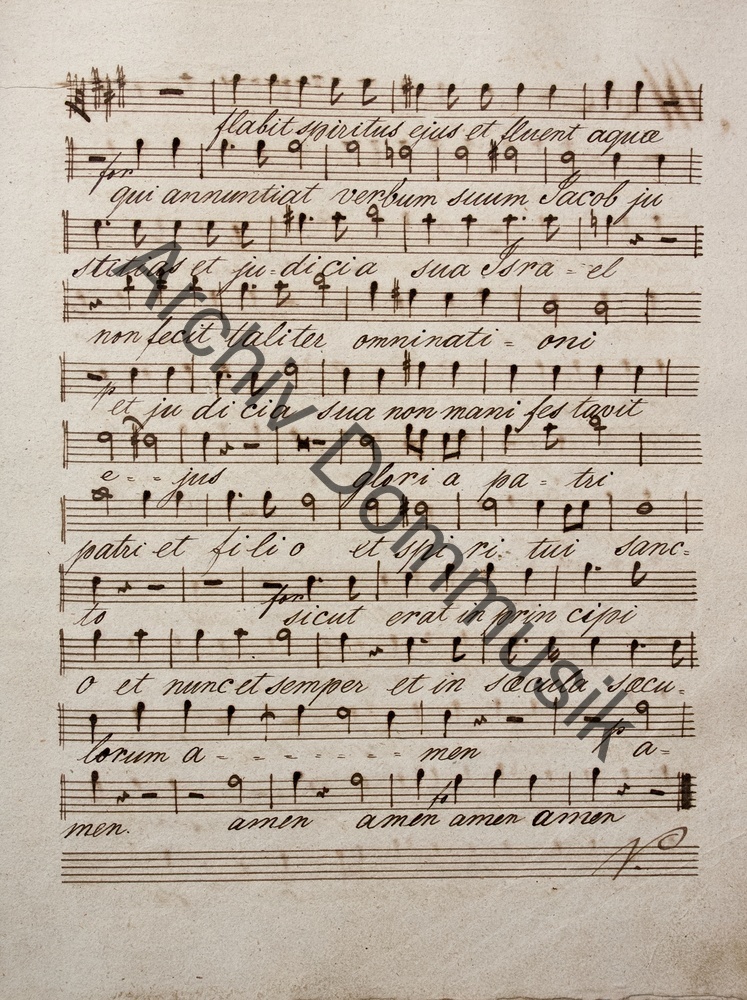 flabit spiritus ejus et fluent aquæ
for
qui annuntiat verbum suum Jacob ju
stitias et ju-dicia sua Isra-el
non fecit taliter omninati-oni
p
et judicia sua non mani festavit
e--jus gloria pa-tri
patri et filio et spi ri tui sanc-
for
to sicut erat in prin cipi
o et nunc et semper et in sæcula sæcu-
p
lorum a--------men a-
fo
men. amen amen amen amen
Archiv Dommusik